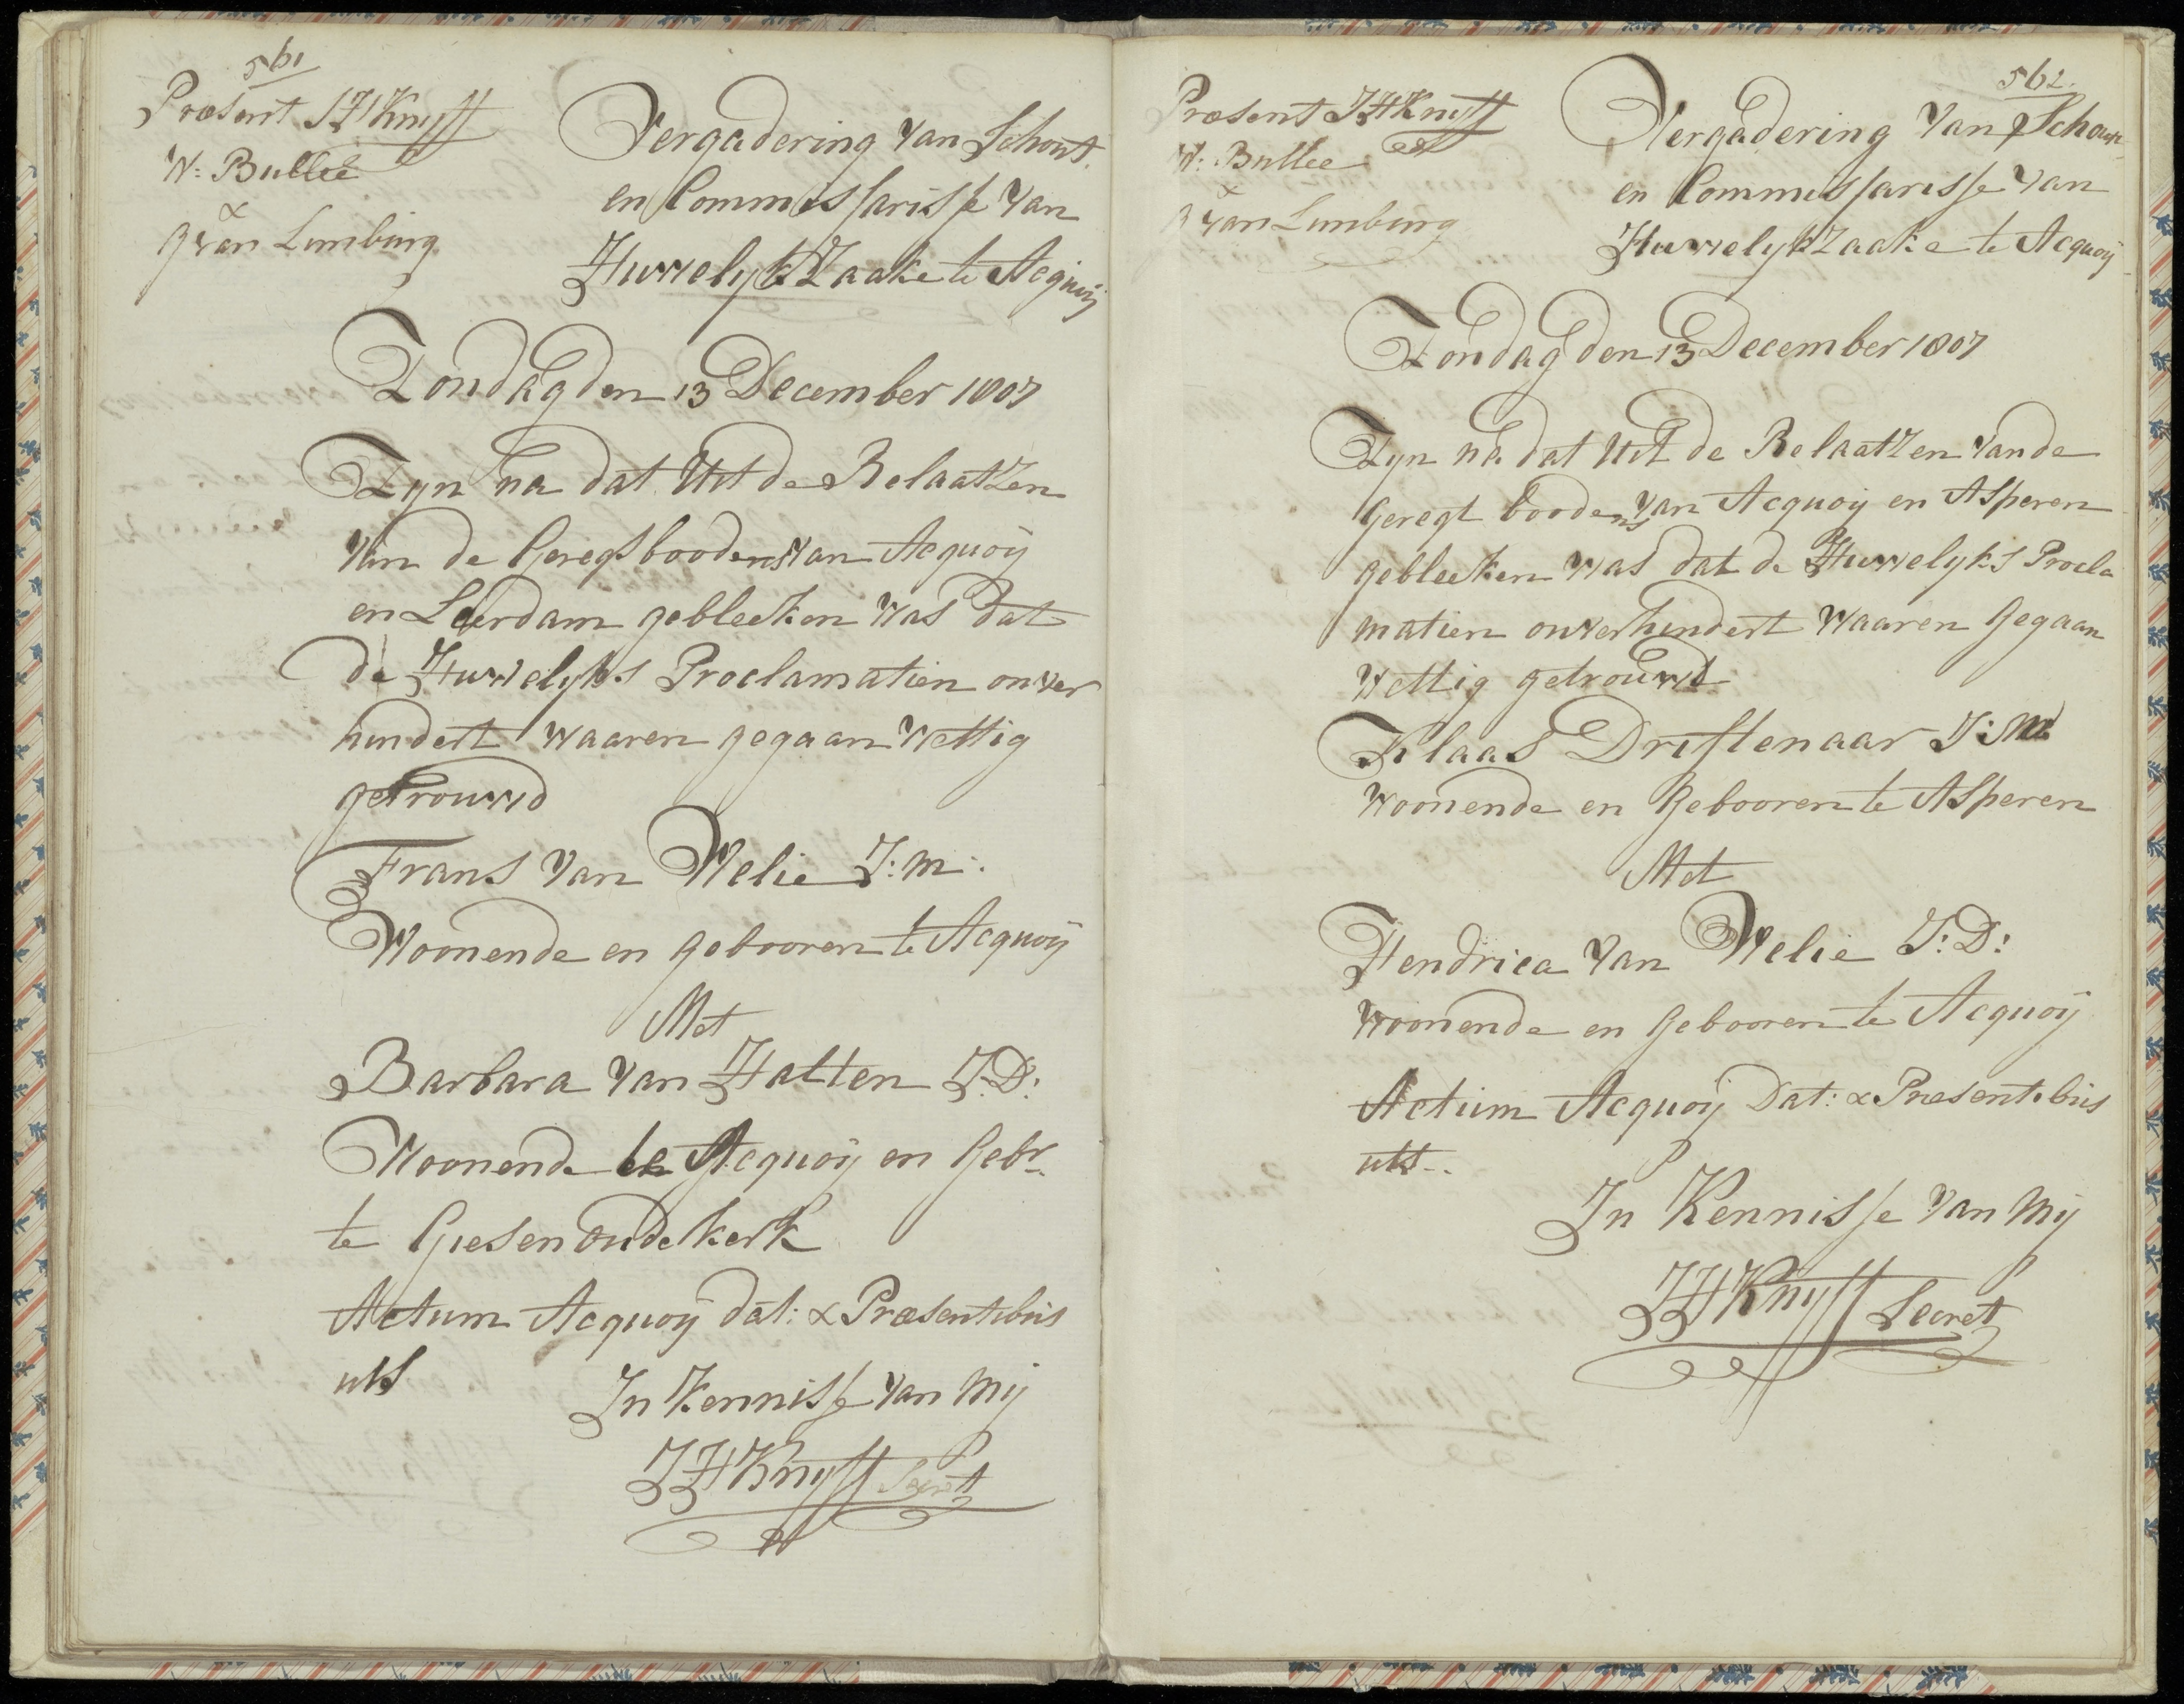 561
Præsent JH Knyff
W: Bullee
&
G van Limburg
Vergadering van Schout
en Commissarisse van
Huwelyk Zaake te Acquoij
Zondag den 13 December 1807
Zyn na dat Uit de Relaatzen
van de Geregsboodens van Acquoij
en Leerdam gebleeken was dat
de Huwelyks Proclamatien onver
hindert waaren gegaan Wettig
getrouwd
Frans van Welie J: m:
Woonende en gebooren te Acquoij
Met
Barbara van Hatten J:D:
Woonende te Acquoij en Gebr.
te Giesenoudekerk
Actum Acquoij dat: & Præsentibus
uts
In Kennisse van Mij
JH Knyff Secret
562
Præsent JH Knyff
W: Bullee
&
G van Limburg
Vergadering van Schout
en Commissarisse van
Huwelyk Zaake te Acquoij
Zondag den 13 December 1807
Zyn na dat Uit de Relaatzen van de
Geregt boodens van Acquoij en Asperen
gebleeken was dat de Huwelyks Procla
matien onverhindert waaren Gegaan
Wettig getrouwd
Klaas Driftenaar J: M
Woonende en Gebooren te Asperen
Met
Hendrica van Welie J: D:
Woonende en Gebooren te Acquoij
Actum Acquoij Dat: & Præsentibus
uts..
In Kennisse van Mij
JH Knyff Secret